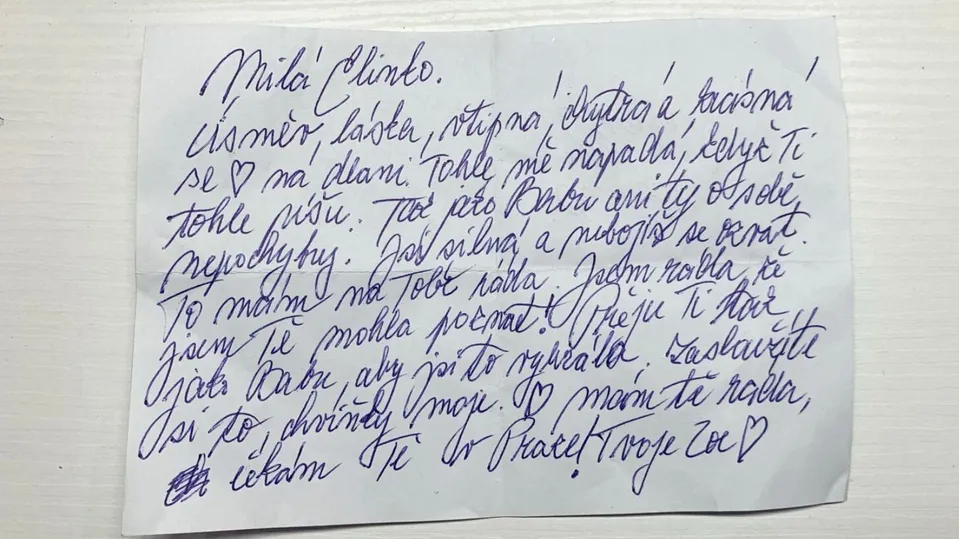 Milá Elinko.
Úsměv, láska, vtipná, chytrá a krásná
se ♡ na dlani. Tohle mě napadá, když Ti
tohle píšu. Tak jako Babu ani ty o sobě
nepochybuj. Jsi silná a nebojíš se ozvat.
To mám na Tobě ráda. Jsem ráda, že
jsem Tě mohla poznat! Přeju Ti
jako Babu, aby jsi to vyhrála. Zasloužíte
si to, moje. ♡ mám tě ráda,
čekám Tě v Praze! Tvoje Zoe ♡